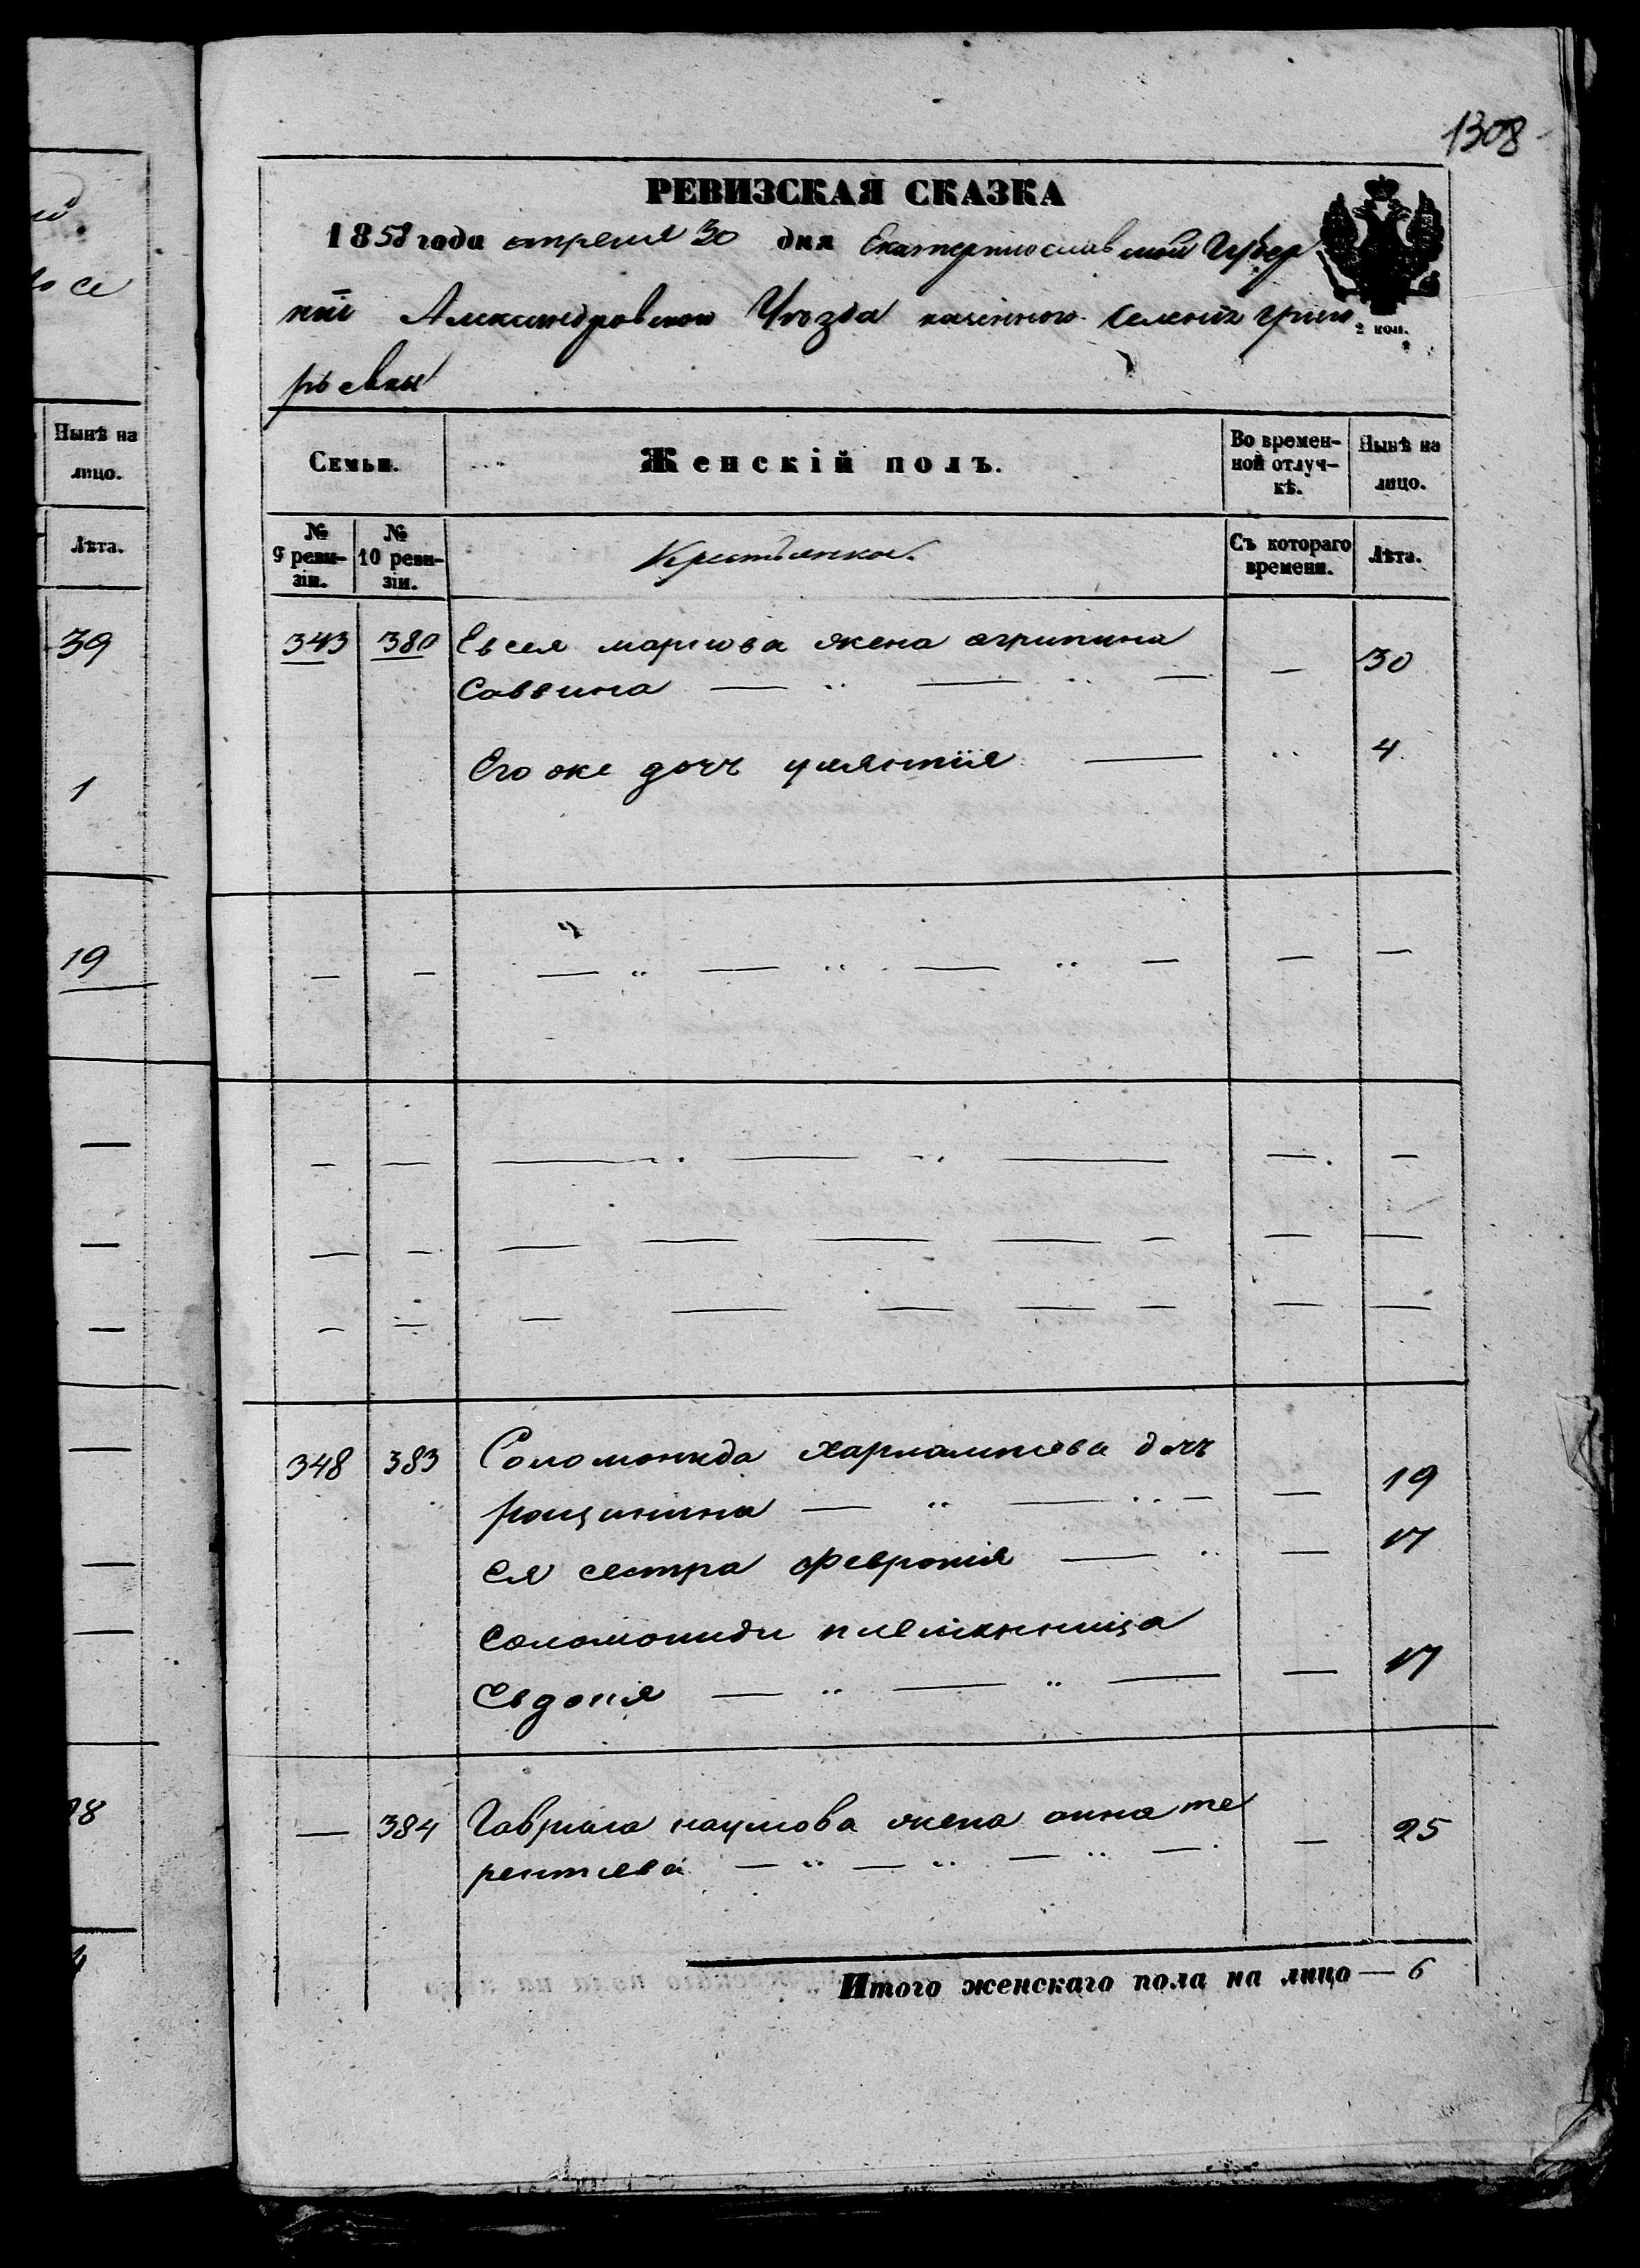 1308
РЕВИЗСКАЯ СКАЗКА
1858 года апреля 30 дня Екатеринославской Губер
нии Александровского Уѣзда казенного Селения Григо
рьевки
2 коп.
Нынѣ на
лицо.
Лѣта.
39
1
19
Семьи.
Женскій полъ.
Во времен-
ной отлуч-
кѣ.
Нынѣ на
лицо.
№
9 реви-
зіи.
№
10 реви-
зіи.
Крестьянка.
Съ котораго
времени.
Лѣта.
343 380 Евсея маркова жена агрипина
Саввина — „ — „ — — 30
Его же дочь — „ 4
348 383 Соломонида харлампиева дочь
рощинина — „ — „ — — 19
Ея сестра Феврония — „ — 17
Соломониды племянница
Евдокия — „ — „ — — 17
— 384 Гаврила наумова жена анна те
рентиева — „ — „ — „ — — 25
Итого женскаго пола на лицо — 6